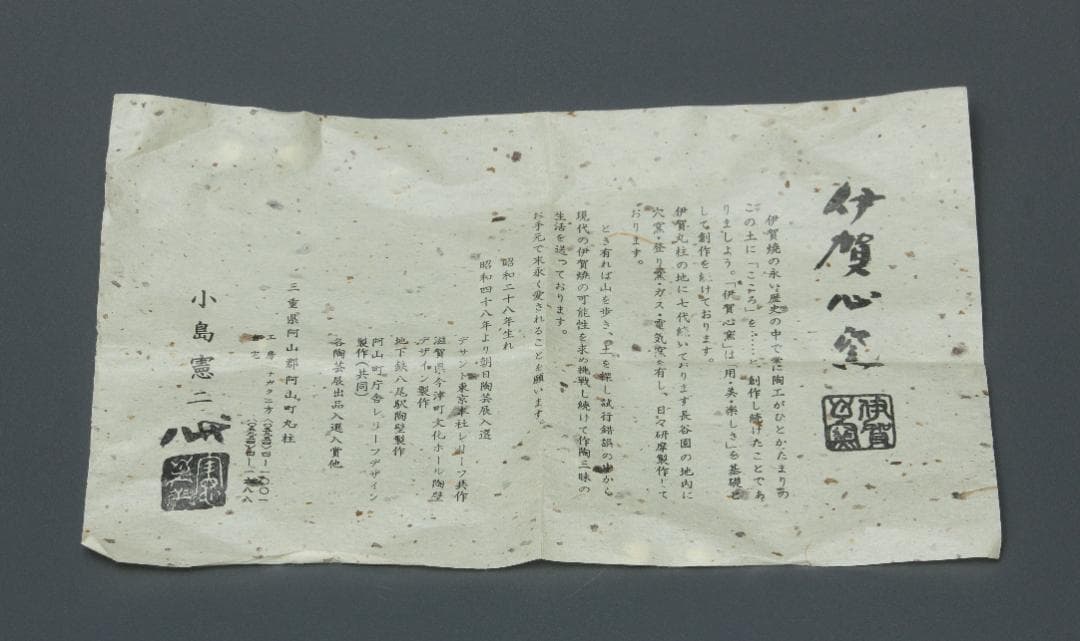 伊賀心窯
伊賀心窯
伊賀焼の永い歴史の中で常に陶工がひとかたまりの
この土に「こころ」を……と、創作し続けたことであ
りましょう。「伊賀心窯」は「用・美・楽しさ」を基礎と
して創作を続けております。
伊賀丸柱の地に七代続いております長谷園の地内に
穴窯・登り窯・ガス・電気窯を有し、日々研摩製作して
おります。
とき有れば山を歩き、土を探し試行錯誤の中から
現代の伊賀焼の可能性を求め挑戦し続けて作陶三昧の
生活を送っております。
お手元で末永く愛されることを願います。
昭和二十八年生れ
昭和四十八年より朝日陶芸展入選
デサント東京本社レリーフ共作
滋賀県今津町文化ホール陶壁
デザイン製作
地下鉄八尾駅陶壁製作
阿山町庁舎レリーフデザイン
製作(共同)
各陶芸展出品入選入賞他
三重県阿山郡阿山町丸柱
工房
宅
小島憲二